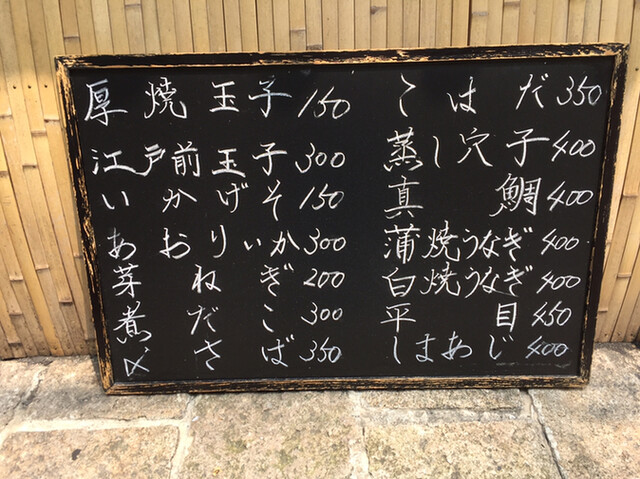 厚焼玉子 150
江戸前玉子 300
いかげそ 150
あおりいか 300
芽ねぎ 200
煮だこ 300
〆さば 350
こはだ 350
蒸し穴子 400
真鯛 400
蒲焼うなぎ 400
白焼うなぎ 400
平目 450
しまあじ 400